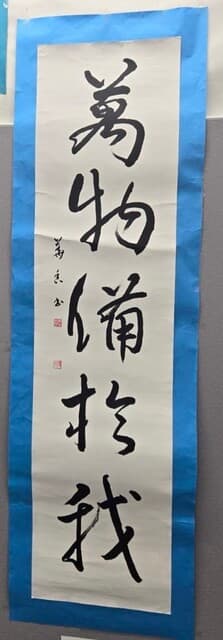 萬物備於我
書